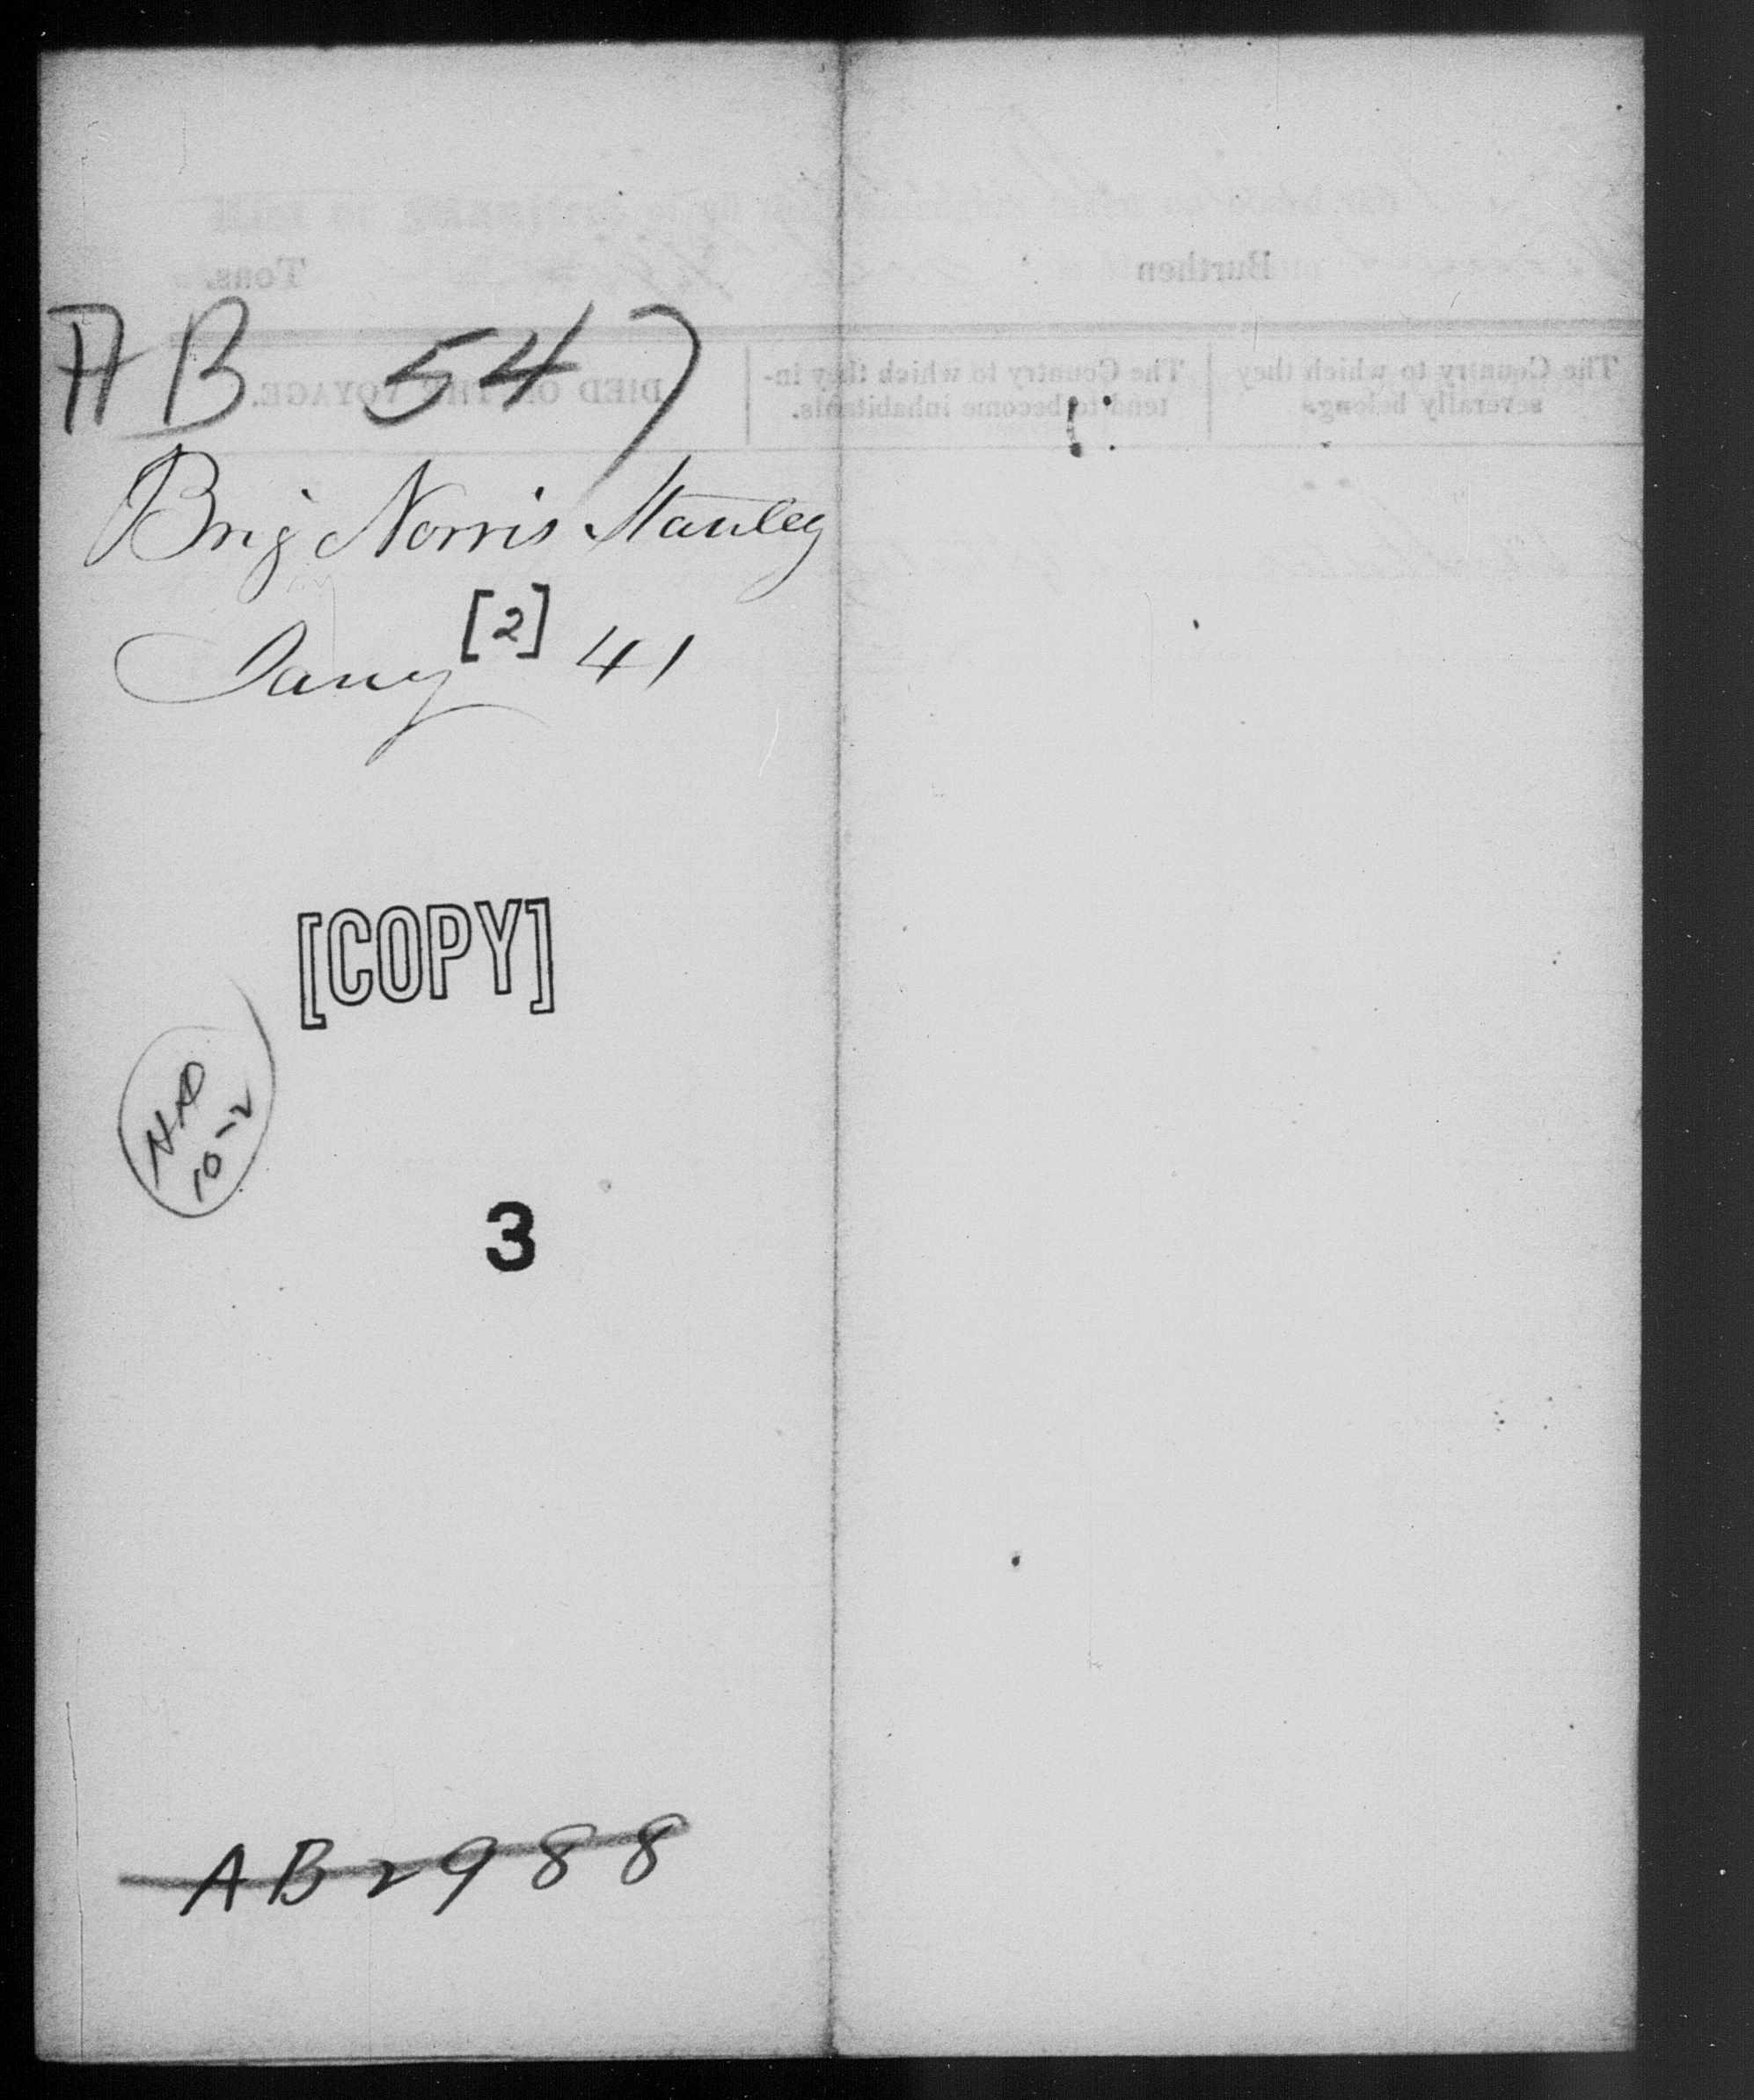 Burthen Tons.
The Country to which they severally belong.
The Country to which they intend to become inhabitants.
DIED ON THE VOYAGE.
AB 547
Brig Norris Stanley
Jany [2] 41
[COPY]
10-2
3
AB 2988